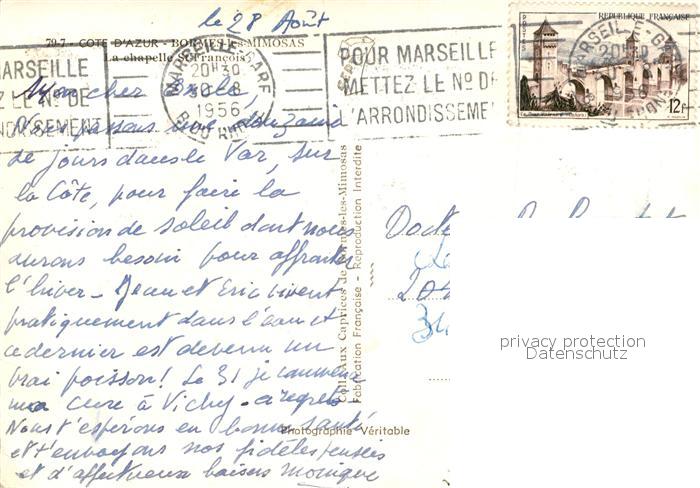 le 28 Août
79-7 - COTE D'AZUR - BORMES-les-MIMOSAS
La chapelle St-François
MARSEILLE
Z LE No DE
NDISSEMENT
MARSEILLE-GARE
20H30
30-8
1956
BCHES DU RHONE
POUR MARSEILLE
METTEZ LE No DE
L'ARRONDISSEME
REPUBLIQUE FRANÇAISE
POSTES
12F
Mon cher oncle,
Nous passons une douzaine
de jours dans le Var, sur
la Côte, pour faire la
provision de soleil dont nous
aurons besoin pour affronter
l'hiver - Jean et Eric vivent
pratiquement dans l'eau et
ce dernier est devenu un
vrai poisson! Le 31 je commence
ma cure à Vichy - a regrets
Nous t'espérons en bonne santé
et t'envoyons nos fidèles pensées
et d'affectueux baisers Monique
Coll. Aux Caprices de Bormes-les-Mimosas
Fabrication Française - Reproduction Interdite
Photographie Véritable
privacy protection
Datenschutz